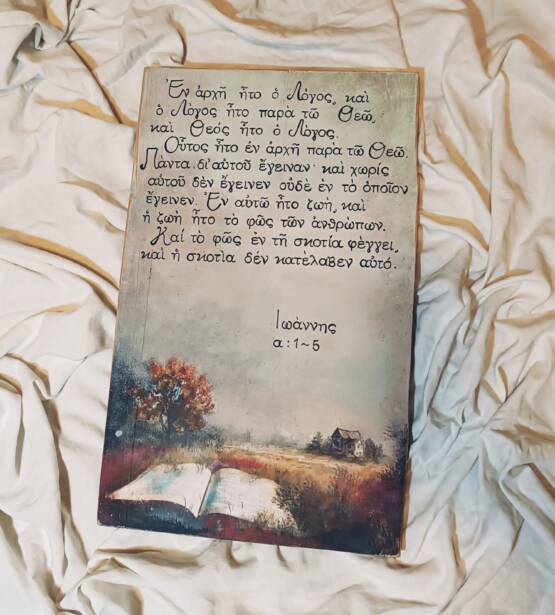 Ἐν ἀρχῇ ἦτο ὁ Λόγος, καὶ
ὁ Λόγος ἦτο παρὰ τῶ Θεῶ.
καὶ Θεός ἦτο ὁ Λόγος.
Οὗτος ἦτο ἐν ἀρχῆ παρὰ τῶ Θεῶ.
Πάντα δι' αὐτοῦ ἔγειναν· καὶ χωρίς
αὐτοῦ δὲν ἔγεινεν οὐδὲ ἐν τὸ ὁποῖον
ἔγεινεν. Ἐν αὐτῶ ἦτο ζωὴ, καὶ
ἡ ζωὴ ἦτο τὸ φῶς τῶν ἀνθρώπων.
Καὶ τὸ φῶς ἐν τῆ σκοτία φέγγει,
καὶ ἡ σκοτὶα δέν κατέλαβεν αὐτό.
Ἰωάννης
α:1~5